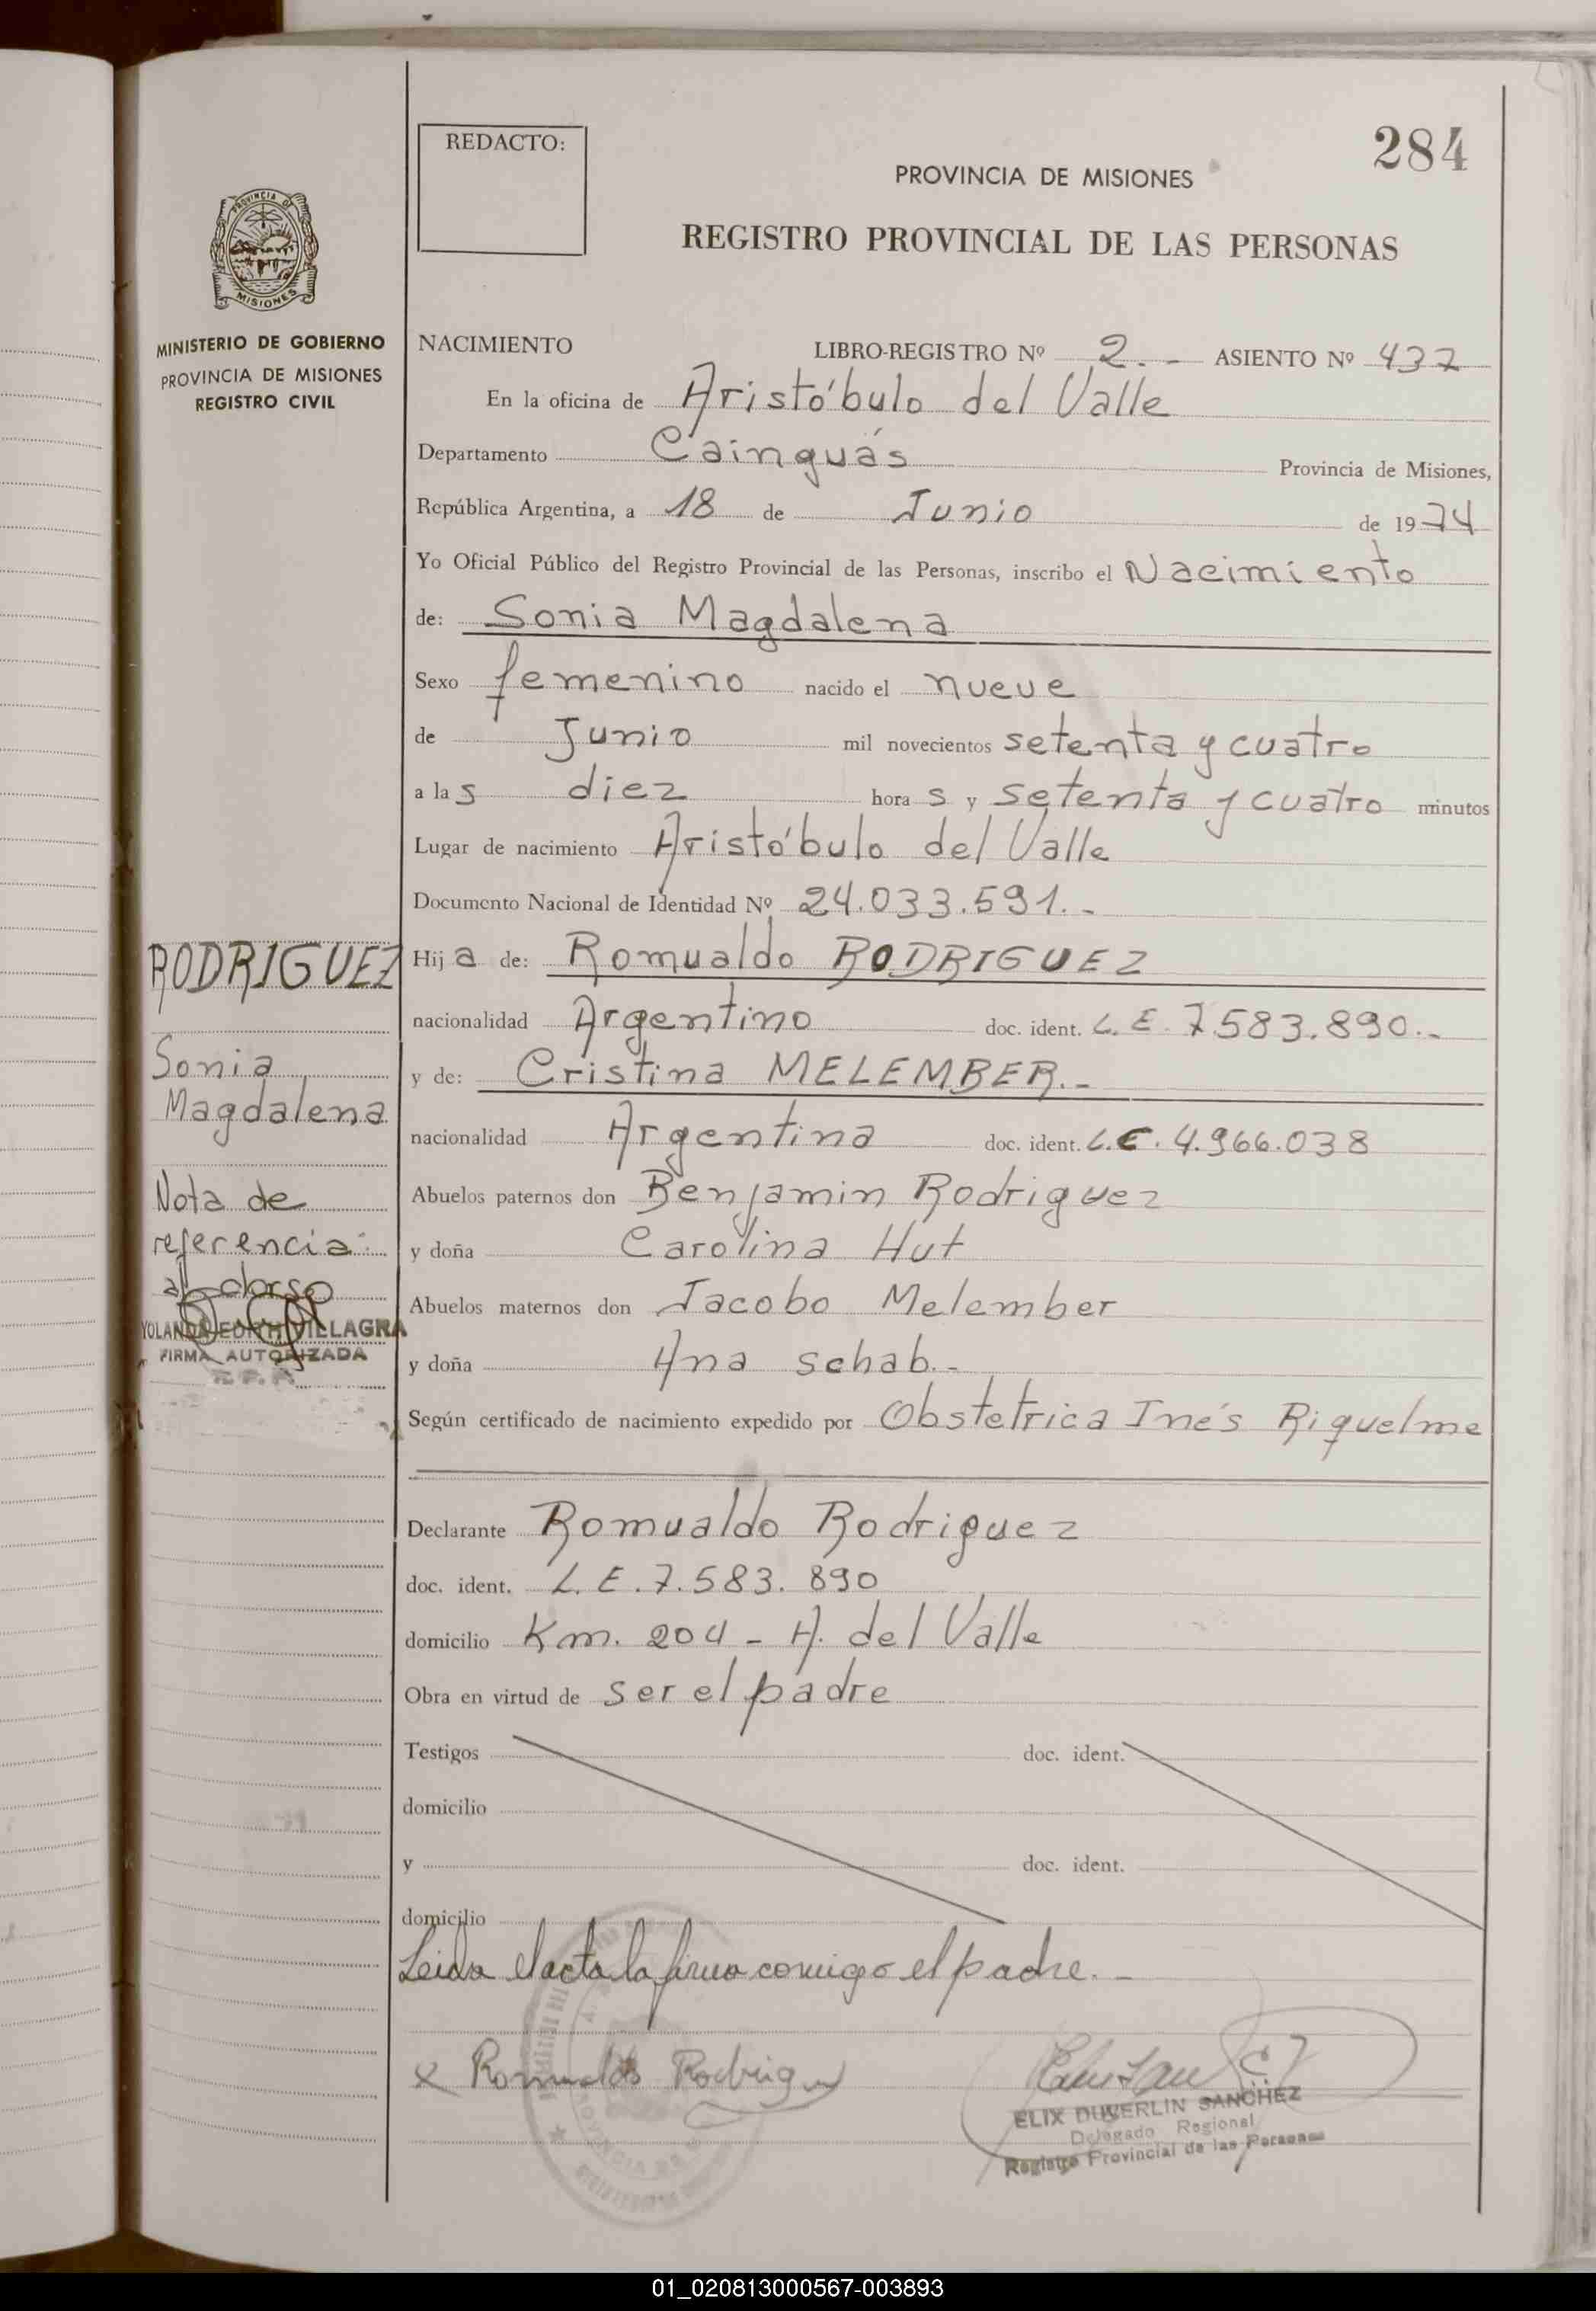 284
REDACTO:
PROVINCIA DE MISIONES
REGISTRO PROVINCIAL DE LAS PERSONAS
PROVINCIA DE
MISIONES
MINISTERIO DE GOBIERNO
PROVINCIA DE MISIONES
REGISTRO CIVIL
NACIMIENTO LIBRO-REGISTRO Nº 2.- ASIENTO Nº 437
En la oficina de Aristóbulo del Valle
Departamento Cainguás Provincia de Misiones,
República Argentina, a 18 de Junio de 1974
Yo Oficial Público del Registro Provincial de las Personas, inscribo el Nacimiento
de: Sonia Magdalena
Sexo femenino nacido el nueve
de Junio mil novecientos setenta y cuatro
a las diez horas y setenta y cuatro minutos
Lugar de nacimiento Aristóbulo del Valle
Documento Nacional de Identidad Nº 24.033.591.-
Hija de: Romualdo RODRIGUEZ
nacionalidad Argentino doc. ident. L.E. 7583.890.-
y de: Cristina MELEMBER.-
nacionalidad Argentina doc. ident. L.C. 4.966.038
Abuelos paternos don Benjamin Rodriguez
y doña Carolina Hut
Abuelos maternos don Jacobo Melember
y doña Ana schab.-
Según certificado de nacimiento expedido por Obstetrica Inés Riquelme
Declarante Romualdo Rodriguez
doc. ident. L.E.7.583.890
domicilio Km. 204 - A. del Valle
Obra en virtud de ser el padre
Testigos doc. ident.
domicilio
y doc. ident.
domicilio
Leida el acta la firma conmigo el padre.-
x Romualdo Rodriguez
ELIX DUVERLIN SANCHEZ
Delegado Regional
Registro Provincial de las Personas
RODRIGUEZ
Sonia
Magdalena
Nota de
referencia
al dorso
YOLANDA EDITH VILLAGRA
FIRMA AUTORIZADA
01_020813000567-003893